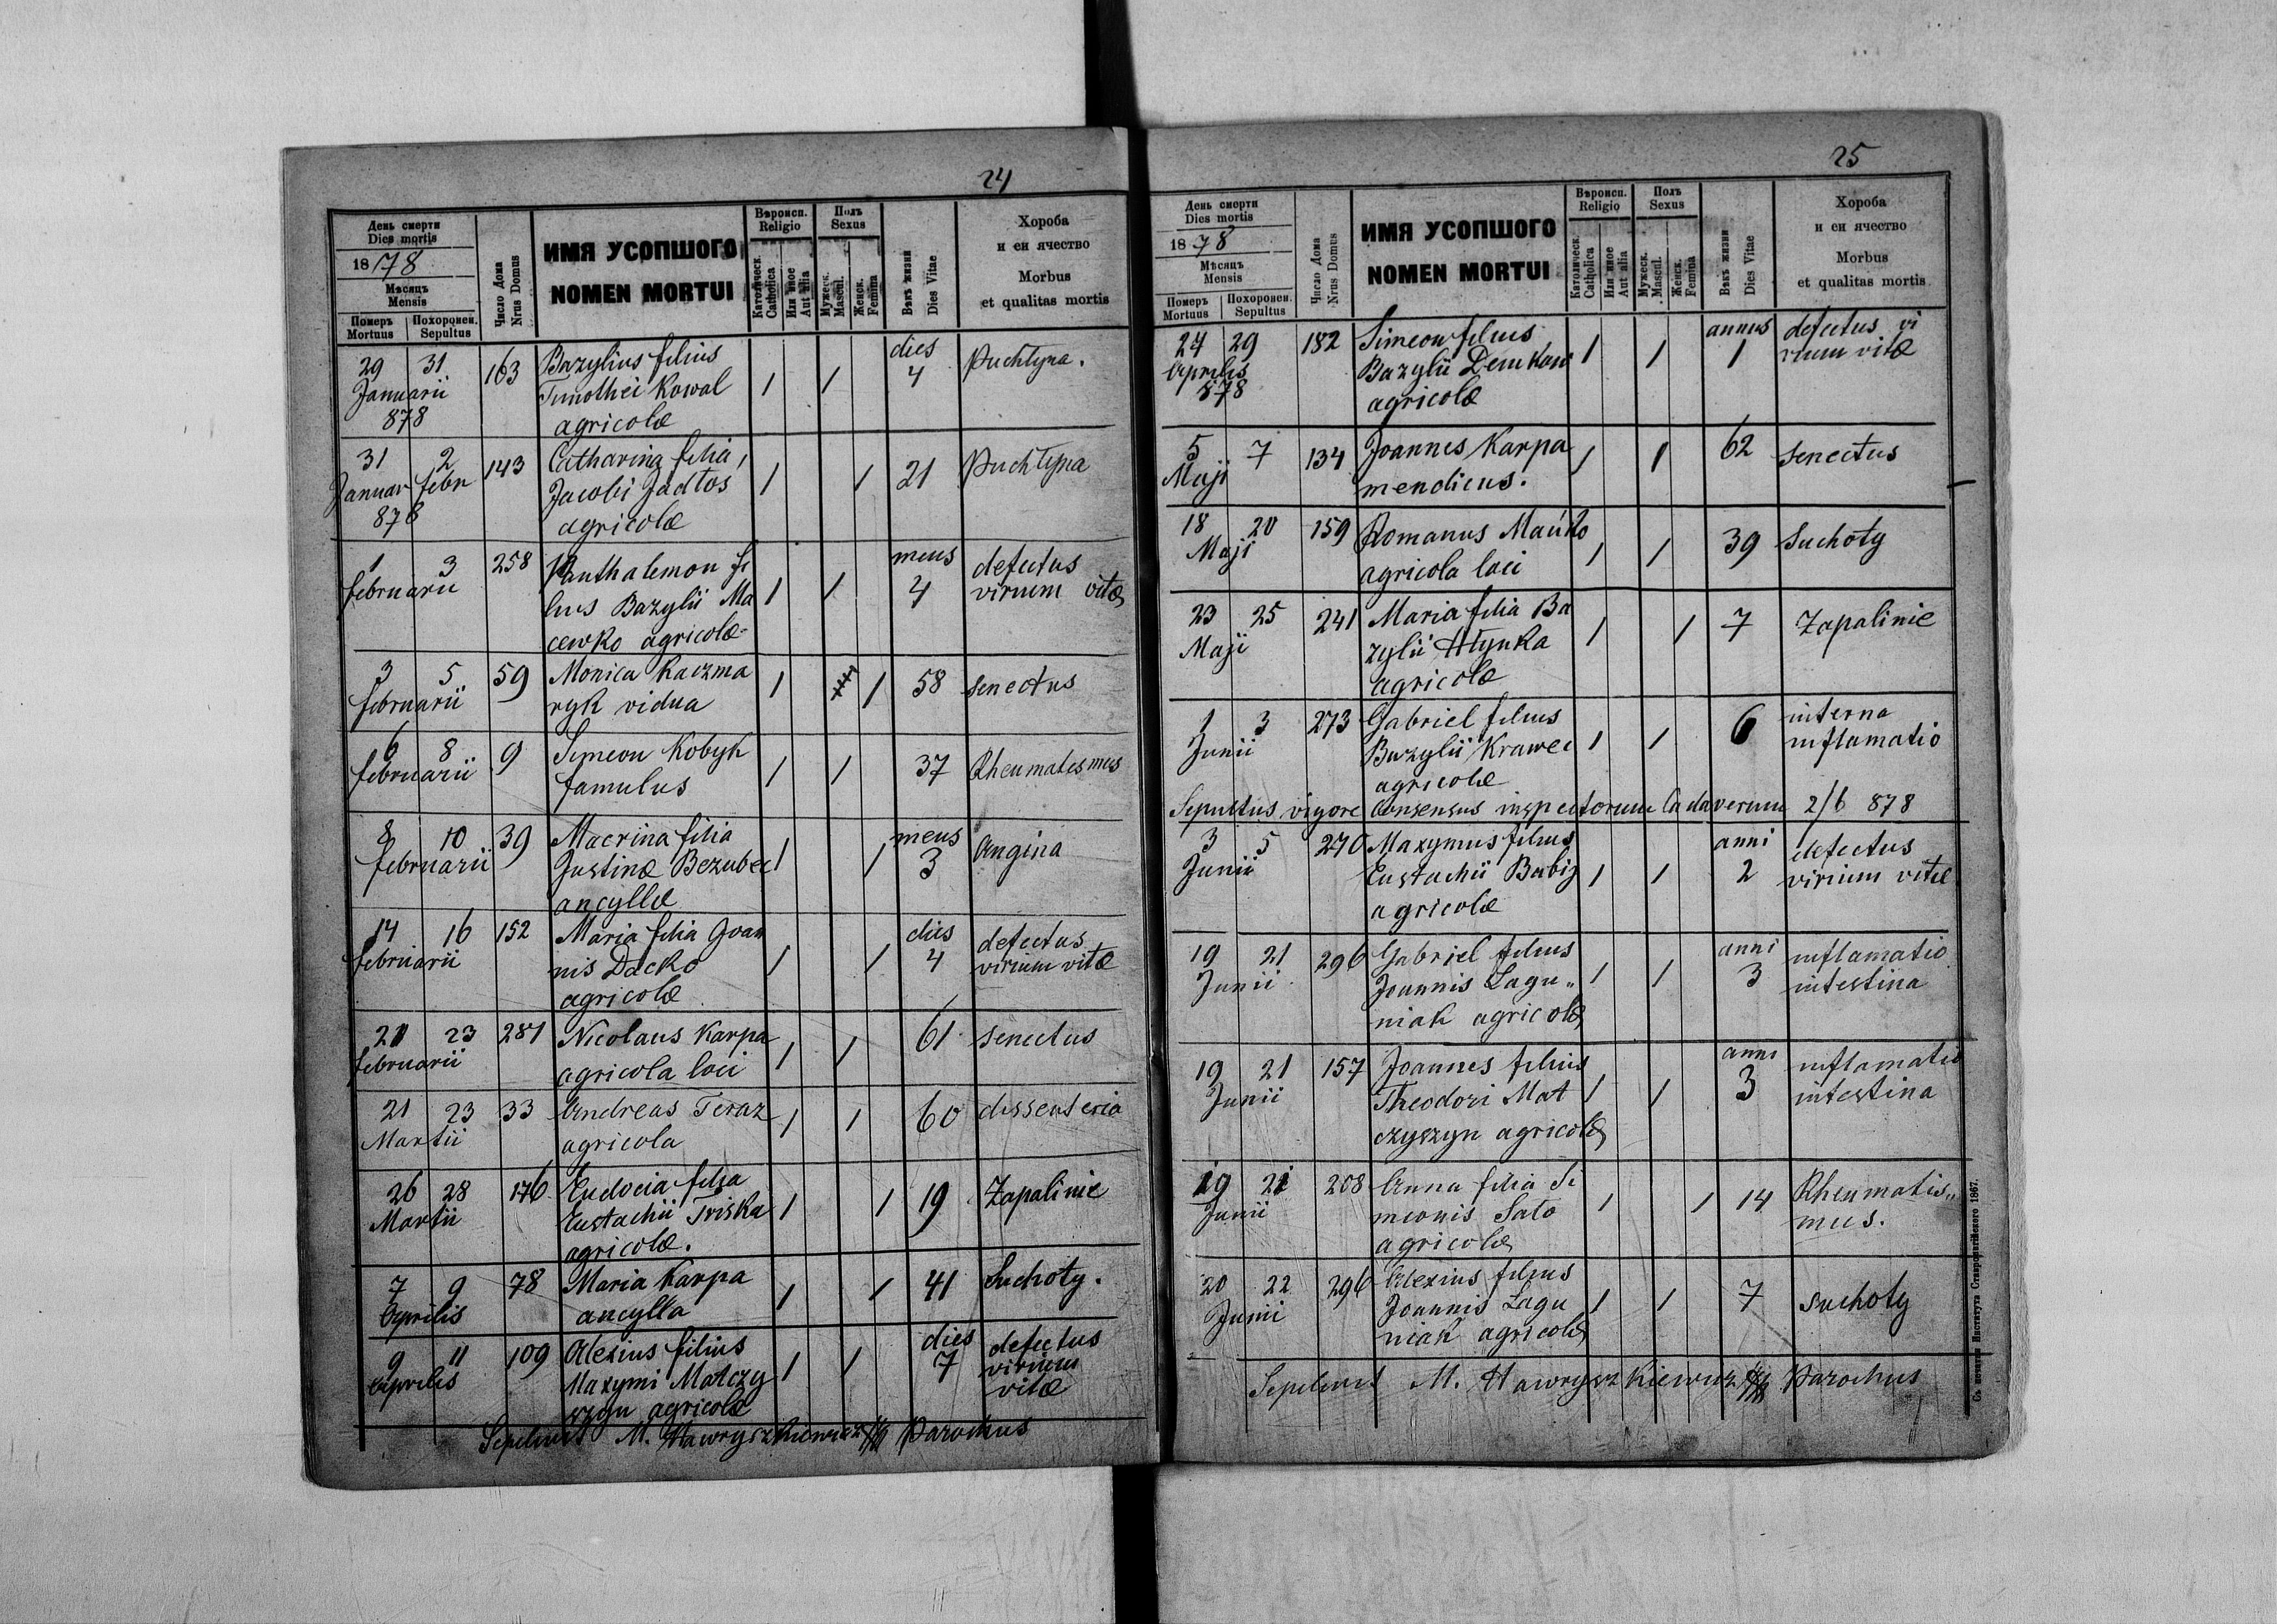 24
День смерти
Dies mortis
1878
Мѣсяцъ
Mensis
Померъ Похоронен.
Mortuus Sepultus
Число Дома
Nrus Domus
ИМЯ УСОПШОГО
NOMEN MORTUI
Вѣроисп.
Religio
Католическ.
Catholica
Или иное
Aut alia
Полъ
Sexus
Мужеск.
Mascul.
Женск.
Femina
Вѣкъ жизни
Dies Vitae
Хороба
и еи ячество
Morbus
et qualitas mortis
29 31 163 Bazylius filius dies Puchlyna.
Januarii Timothei Kowal 1 1 4
878 agricolæ
31 2 143 Catharina filia,
Januar febr Jacobi Jadłos 1 1 21 Puchlyna
878 agricolæ
1 3 258 Panthalemon fi mens defectus
februarii lius Bazylii Ma 1 1 4 virium vitæ
cewko agricolæ
3 5 59 Monica Kaczma 1 1 58 senectus
februarii ryk vidua
6 8 9 Simeon Kobyk 1 1 37 Rheumatismus
februarii famulus
8 10 39 Macrina filia mens Angina
februarii Justinæ Bezubec 1 1 3
ancyllæ
14 16 152 Maria filia Joan dies defectus
februarii nis Dacko 1 1 4 virium vitæ
agricolæ
21 23 287 Nicolaus Karpa 1 1 61 senectus
februarii agricola loci
21 23 33 Andreas Teraz 1 1 60 dissenteria
Martii agricola
26 28 176 Eudocia filia 1 1 19 Zapalinie
Martii Eustachii Triska
agricolæ.
7 9 78 Maria Karpa 1 1 41 Suchoty.
Aprilis ancylla
9 11 109 Alexius filius dies defectus
Aprilis Maxymi Matczy 1 1 7 virium
szyn agricolæ vitæ
Sepelivit M. Hawryszkiewicz Parochus
25
День смерти
Dies mortis
1878
Мѣсяцъ
Mensis
Померъ Похоронен.
Mortuus Sepultus
Число Дома
Nrus Domus
ИМЯ УСОПШОГО
NOMEN MORTUI
Вѣроисп.
Religio
Католическ.
Catholica
Или иное
Aut alia
Полъ
Sexus
Мужеск.
Mascul.
Женск.
Femina
Вѣкъ жизни
Dies Vitae
Хороба
и еи ячество
Morbus
et qualitas mortis
27 29 182 Simeon filius annus defectus vi
Aprilis Bazylii Demkow 1 1 1 rium vitæ
878 agricolæ
5 7 134 Joannes Karpa 1 1 62 senectus
Maji mendicus.
18 20 159 Romanus Mańko 1 1 39 Suchoty
Maji agricola loci
23 25 241 Maria filia Ba 1 1 7 Zapalinie
Maji zylii Hlynka
agricolæ
1 3 273 Gabriel filius interna
Junii Bazylii Krawec 1 1 6 inflamatio
agricolæ
Sepultus vigore Consensus inspectorum Cadaverum 2/6 878
3 5 270 Maxymus filius anni defectus
Junii Eustachii Babij 1 1 2 virium vitæ
agricolæ
19 21 296 Gabriel filius anni inflamatio
Junii Joannis Lagu„ 1 1 3 intestina
niak agricolæ
19 21 157 Joannes filius anni inflamatio
Junii Theodori Mat 1 1 3 intestina
czyszyn agricolæ
19 21 208 Anna filia Si 1 1 14 Rheumatis„
Junii meonis Sato mus.
agricolæ
20 22 296 Alexius filius
Junii Joannis Lagu 1 1 7 suchoty
niak agricolæ
Sepelivit M. Hawryszkiewicz Parochus
Съ печатни Института Ставропигійского 1867.